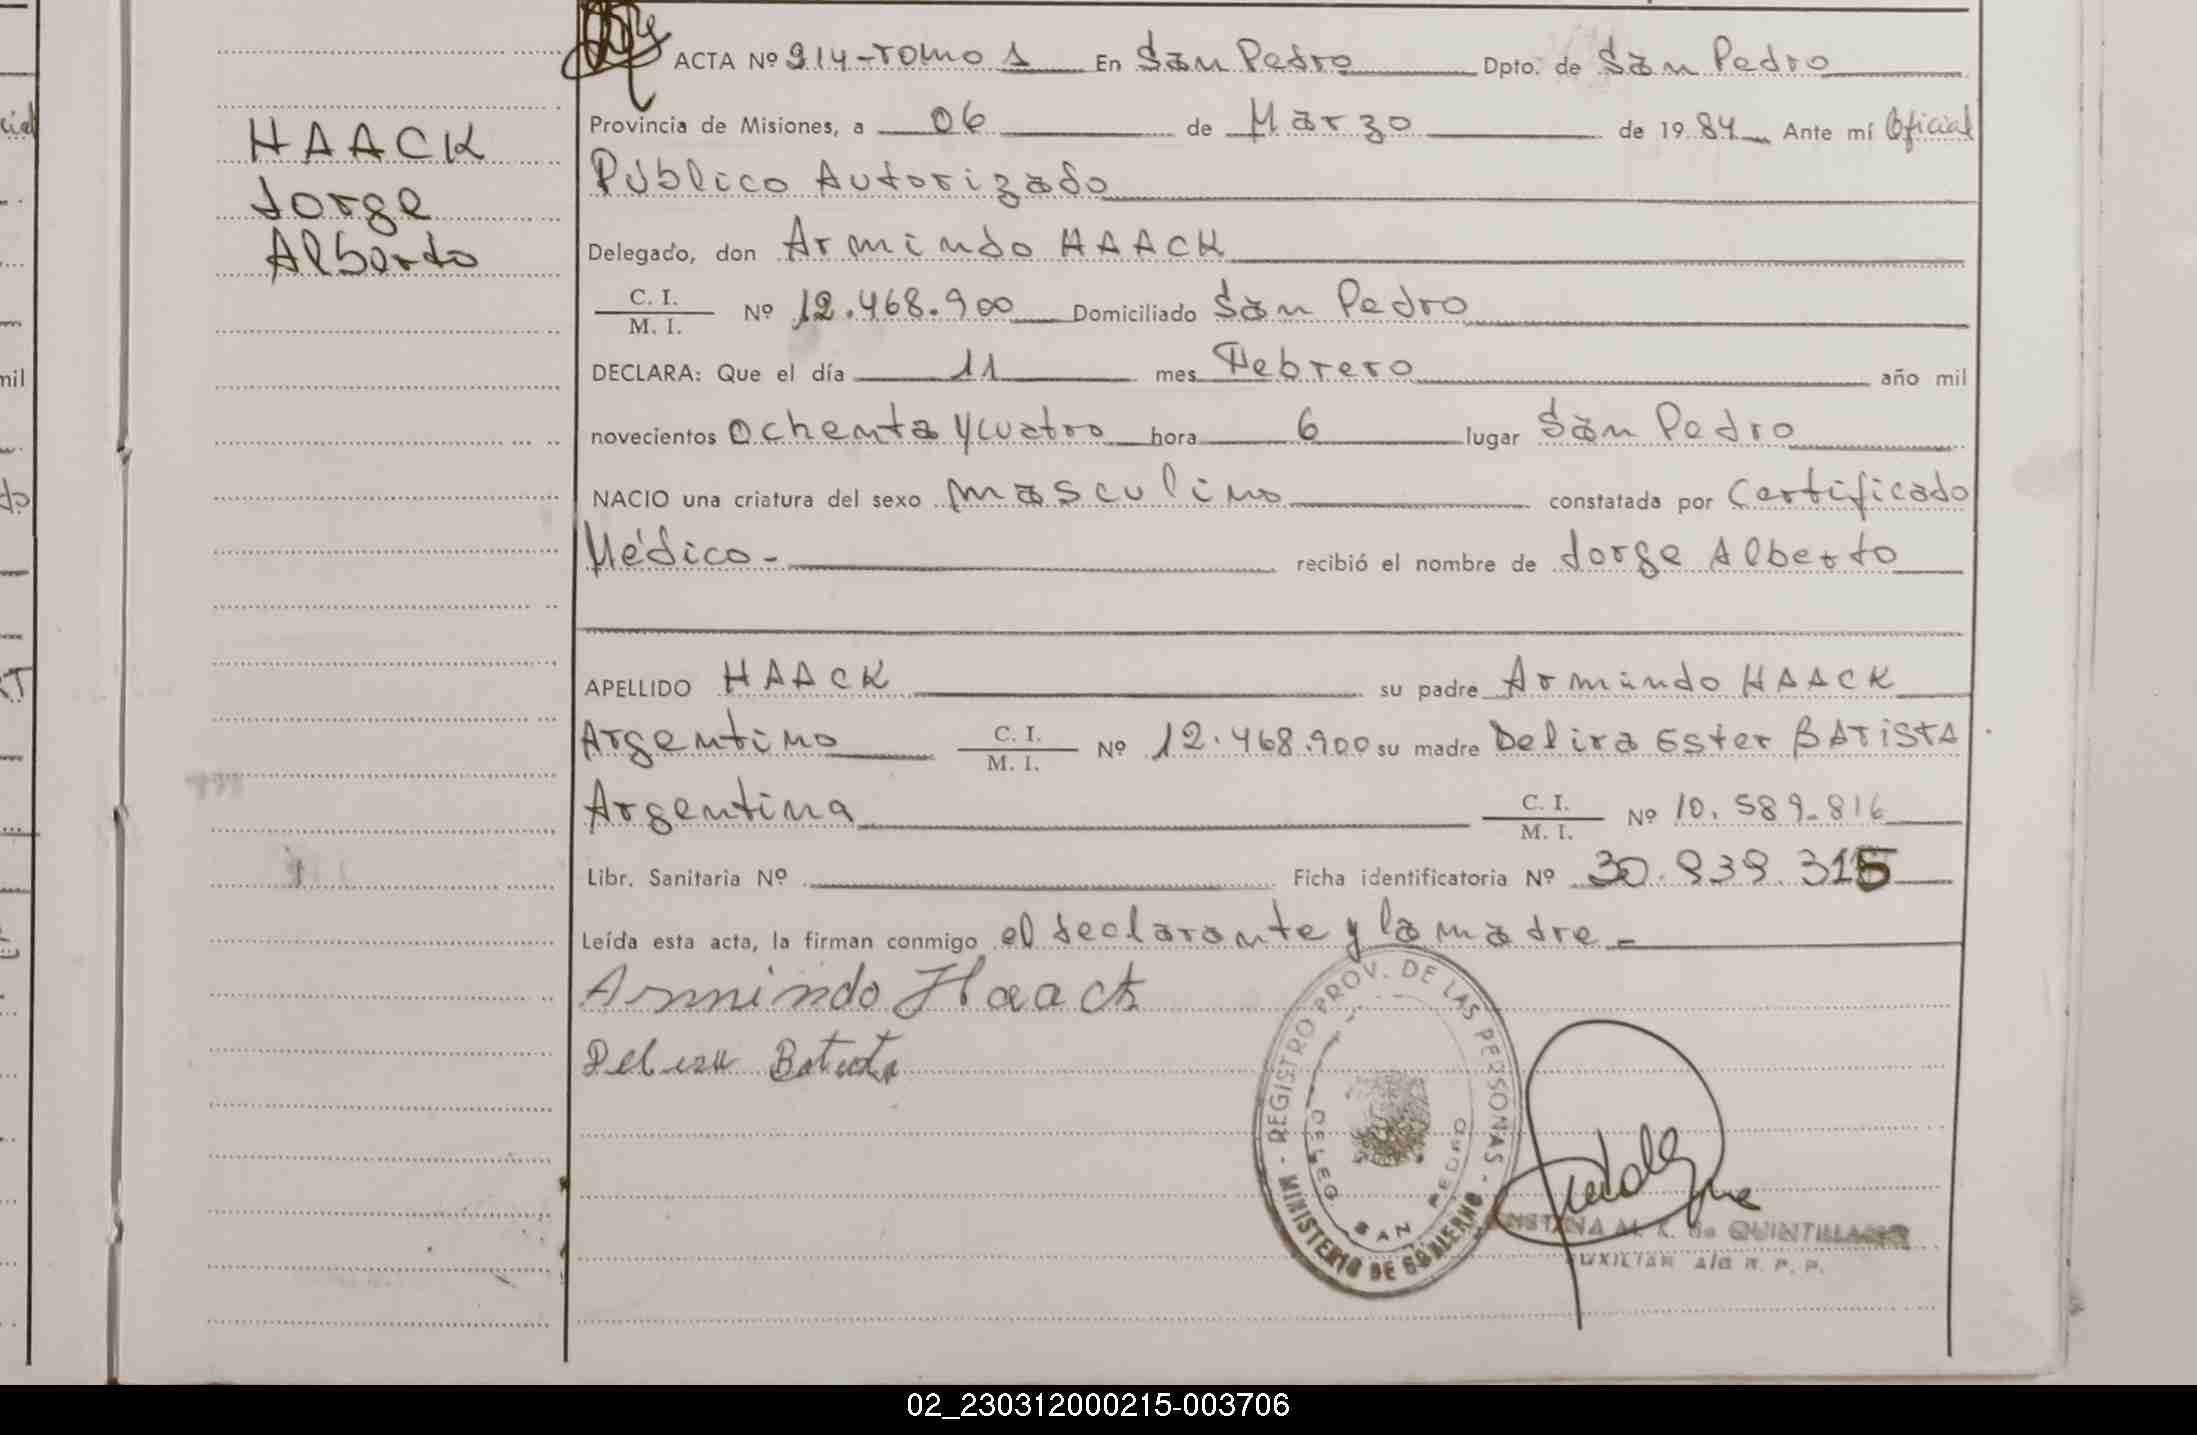 HAACK
Jorge
Alberto
ACTA Nº 914-Tomo 1 En San Pedro Dpto. de San Pedro
Provincia de Misiones, a 06 de Marzo de 1984 Ante mí Oficial
Público Autorizado
Delegado, don Armindo HAACK
C. I.
M. I. Nº 12.468.900 Domiciliado San Pedro
DECLARA: Que el día 11 mes Febrero año mil
novecientos ochenta y cuatro hora 6 lugar San Pedro
NACIO una criatura del sexo masculino constatada por Certificado
Médico - recibió el nombre de Jorge Alberto
APELLIDO HAACK su padre Armindo HAACK
Argentino C. I. M. I. Nº 12.468.900 su madre Delira Ester BATISTA
Argentina C. I. M. I. Nº 10.589.816
Libr. Sanitaria Nº Ficha identificatoria Nº 30.839.315
Leída esta acta, la firman conmigo el declarante y la madre -
Armindo Haack
REGISTRO PROV. DE LAS PERSONAS - MINISTERIO DE GOBIERNO -
DELEG. SAN PEDRO
de QUINTILLANO
02_230312000215-003706